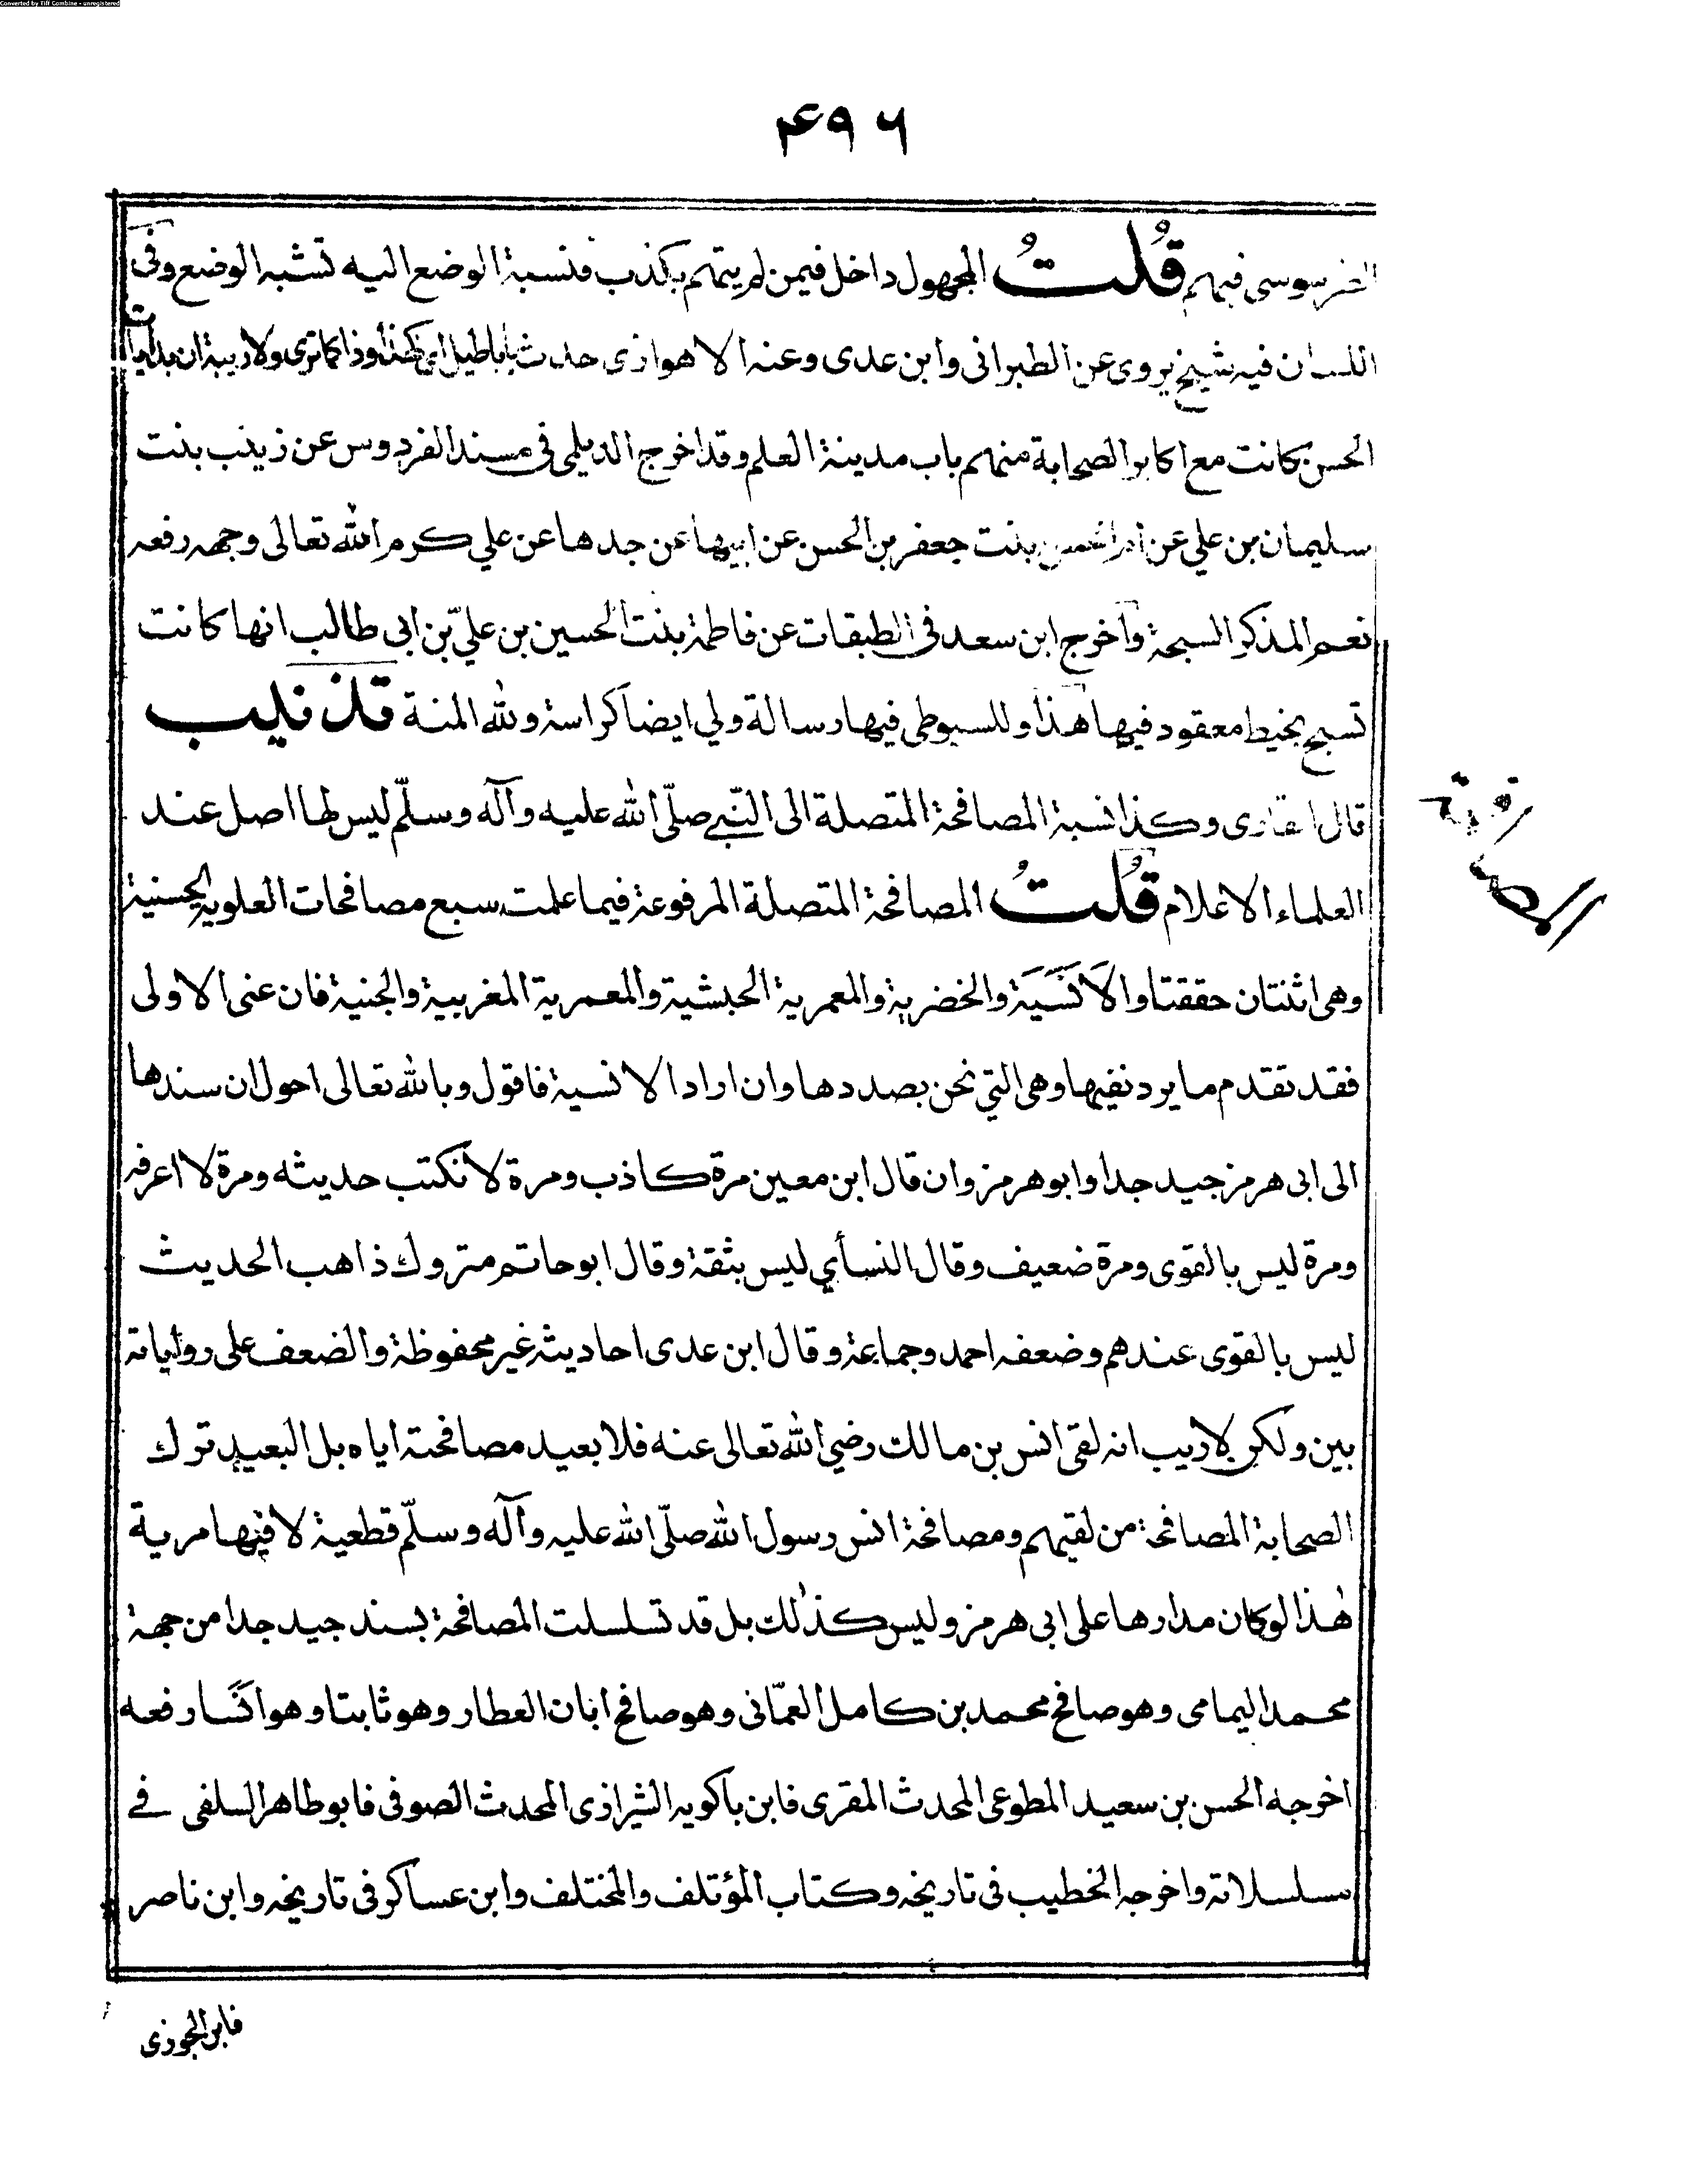 Converted by Tiff Combine - unregistered
۴۹۶
الطرسوسى فيهم قُلتُ المجهول داخل فيمن لم يتهم بكذب فنسبة الوضع اليه تشبه الوضع وفى
اللسان فيه شيخ يروى عن الطبرانى وابن عدى وعنه الاهوازى حدث باباطيل اى كهذا وذا كما ترى ولا ريبة ان بدايات
الحسن كانت مع اكابر الصحابة منهم باب مدينة العلم وقد اخرج الديلمى فى مسند الفردوس عن زينب بنت
سليمان بن علي عن ام الحسن بنت جعفر بن الحسن عن ابيها عن جدها عن علي كرم الله تعالى وجهه رفعه
نعم المذكر السبحة وآخرج ابن سعد فى الطبقات عن فاطمة بنت الحسين بن عليّ بن ابى طالب انها كانت
تسبح بخيط معقود فيها هذا وللسيوطى فيها رسالة ولي ايضا كراسة ولله المنة تذنيب
قال القارى وكذا نسبة المصافحة المتصلة الى النّبي صلّى الله عليه وآله وسلّم ليس لها اصل عند
العلماء الاعلام قُلتُ المصافحة المتصلة المرفوعة فيما علمت سبع مصافحات العلوية الحسنية
وهى اثنتان حققتا والاَنَسَيَة والخضرية والمعمرية الحبشية والمعمرية المغربية والجنية فان عنى الاولى
فقد تقدم ما يرد نفيها وهى التي نحن بصددها وان اراد الانسية فاقول وبالله تعالى احول ان سندها
الى ابى هرمز جيد جدا وابو هرمز وان قال ابن معين مرة كاذب ومرة لا نكتب حديثه ومرة لا اعرفه
ومرة ليس بالقوى ومرة ضعيف وقال النسأي ليس بثقة وقال ابو حاتم متروك ذاهب الحديث
ليس بالقوى عندهم وضعفه احمد وجماعة وقال ابن عدى احاديثه غير محفوظة والضعف على رواياته
بين ولكن لا ريب انه لقى انس بن مالك رضي الله تعالى عنه فلا بعيد مصافحته اياه بل البعيد ترك
الصحابة المصافحة من لقيهم ومصافحة انس رسول الله صلّى الله عليه وآله وسلّم قطعية لا فيها مرية
هٰذا لو كان مدارها على ابى هرمز وليس كذٰلك بل قد تسلسلت المصافحة بسند جيد جدا من جهة
محمد اليمامى وهو صافح محمد بن كامل العمّانى وهو صافح ابان العطار وهو ثابتا وهو اَنَسا رفعه
اخرجه الحسن بن سعيد المطوعى المحدث المقرى فابن باكويه الشيرازى المحدث الصوفى فابو طاهر السلفى في
مسلسلاته واخرجه الخطيب فى تاريخه وكتاب المؤتلف والمختلف وابن عساكر فى تاريخه وابن ناصر
فابن الجوزى